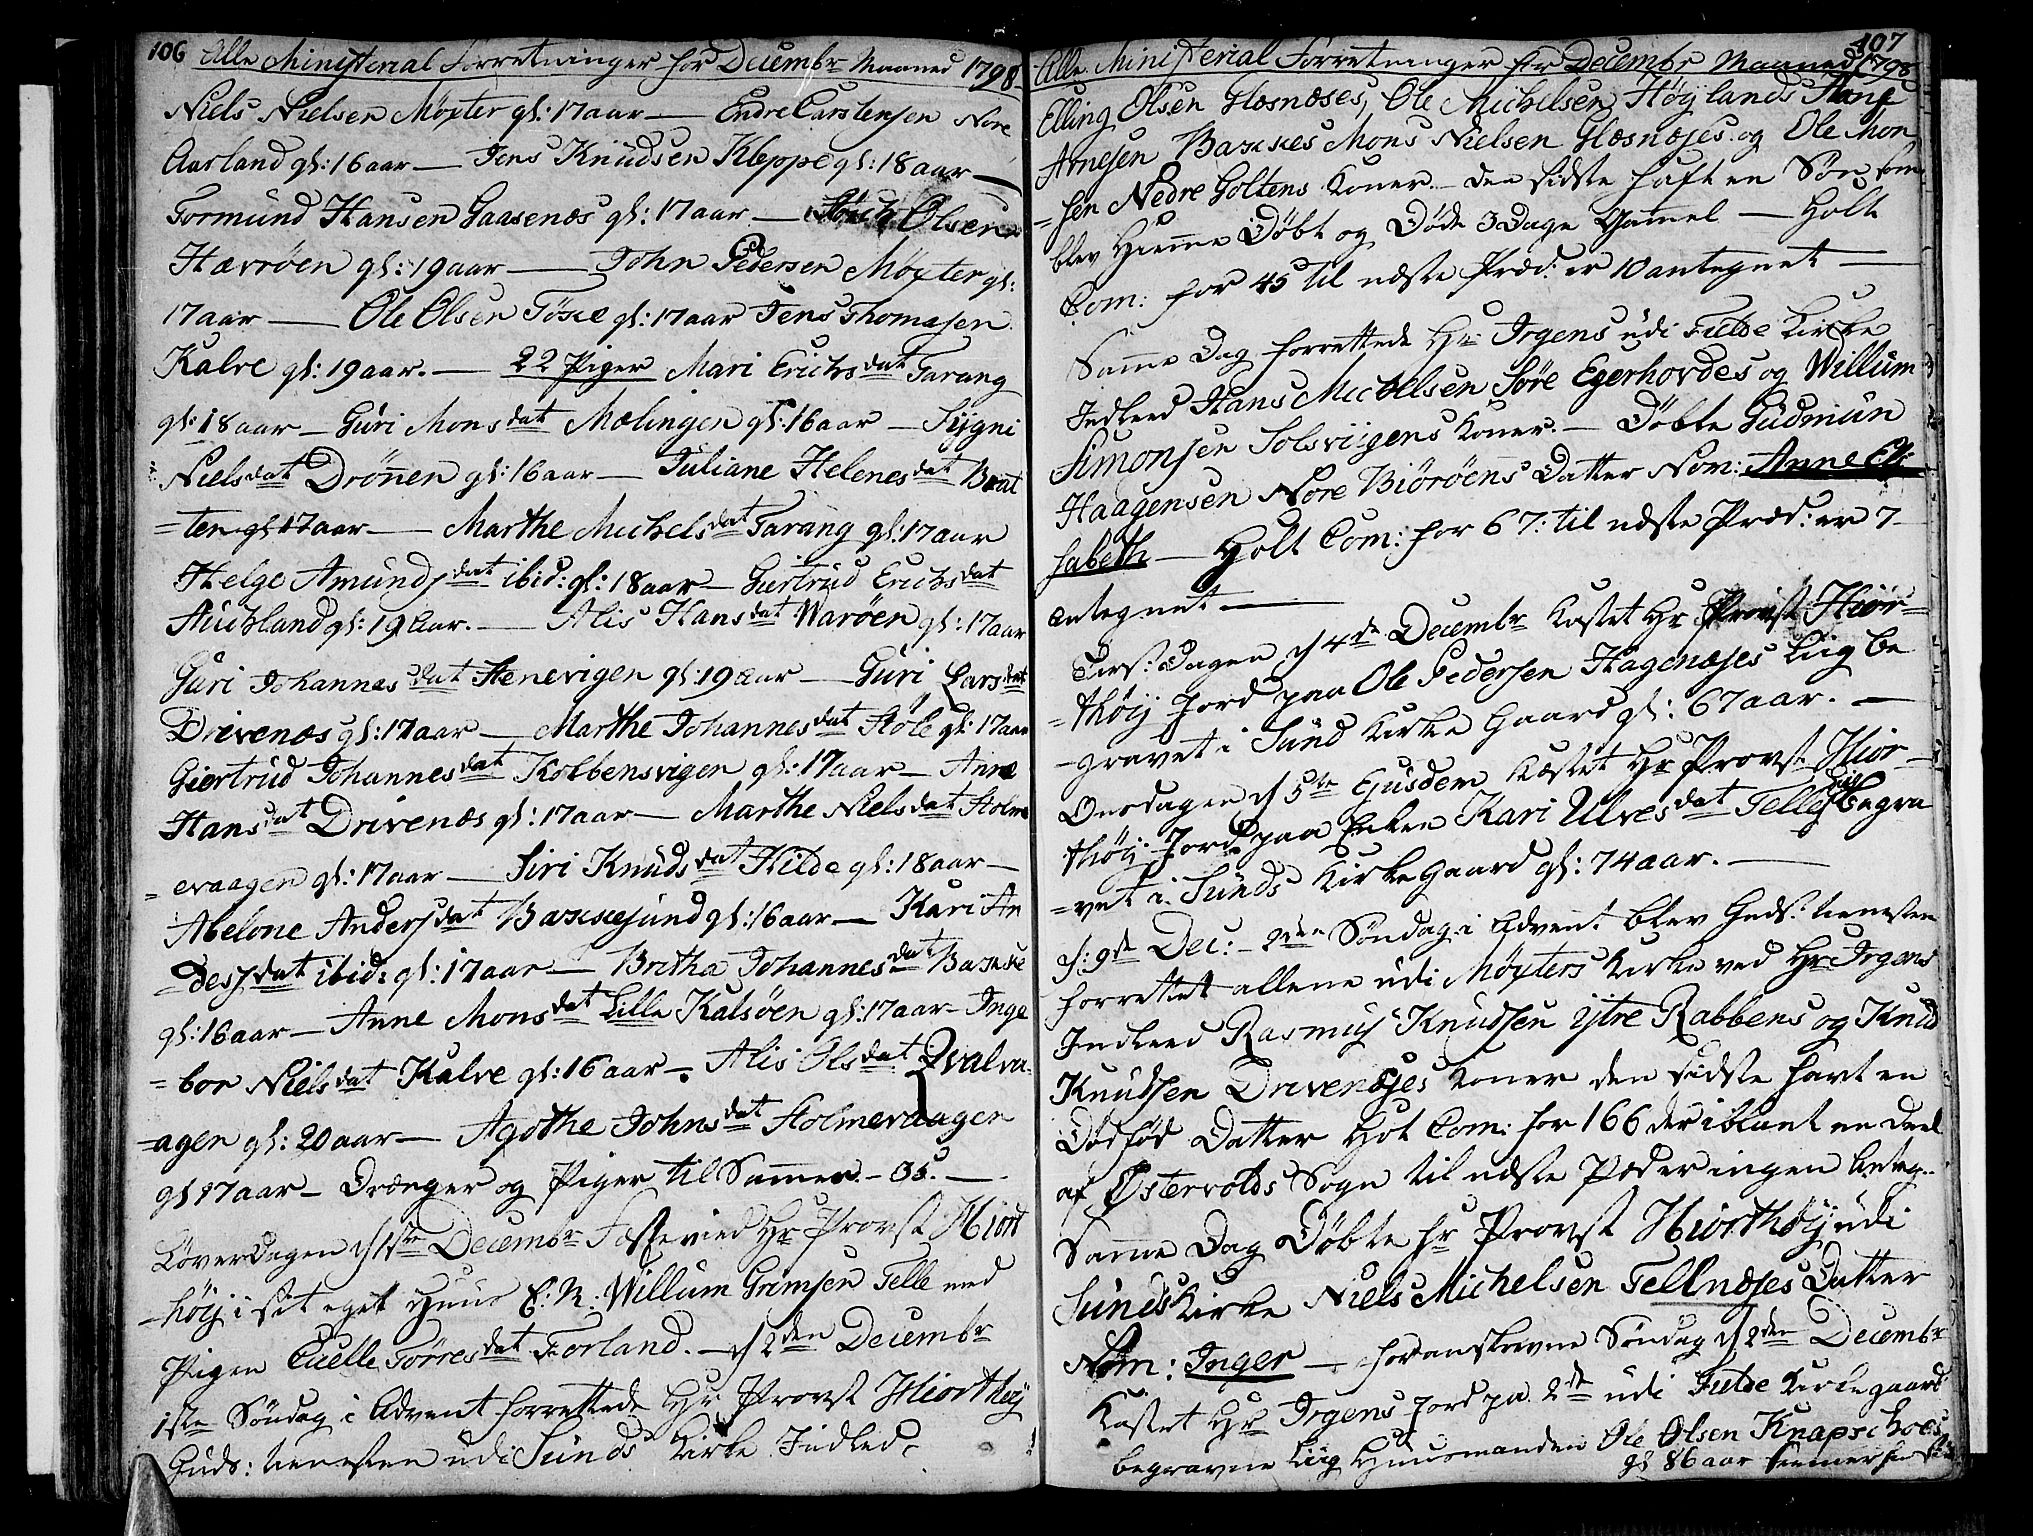 106 Alle Ministerial Forretninger for Decembr Maaned 1798
Niels Nielsen Møxter gl: 17 aar — Endre Carstensen Nore
Aarland gl: 16 aar — Jens Knudsen Kleppe gl: 18 aar —
Tormund Hansen Gaasenæs gl: 17 aar — Olsen
Hævrøen gl: 19 aar — John Pedersen Møxter gl:
17 aar — Ole Olsen Tøsse gl: 17 aar Jens Thomasen
Kalve gl: 19 aar. — 22 Piger Mari Erichsdat Tarang
gl: 18 aar — Guri Monsdat Mælingen gl: 16 aar — Sygni
Nielsdat Drønen gl: 16 aar — Juliane Helenesdat Brat
=ten gl 17 aar — Marthe Michelsdat Tarang gl: 17 aar
Helge Amundsdat ibid: gl: 18 aar — Giertrud Erichsdat
Auchland gl: 19 aar. — Alis Hansdat Warøen gl: 17 aar
Guri Johannesdat Stenevigen gl: 19 aar — Guri Larsdat
Drivenæs gl: 17 aar — Marthe Johannesdat Støle gl: 17 aar
Giertrud Johannesdat Kolbensvigen gl: 17 aar — Anne
Hansdat Drivenæs gl: 17 aar — Marthe Nielsdat Stolm
=evaagen gl: 17 aar — Siri Knudsdat Kilde gl: 18 aar —
Abelone Andersdat Bakkesund gl: 16 aar — Kari An
=desdat ibid: gl: 17 aar — Britha Johannesdat Bakke
gl: 16 aar — Anne Monsdat Lille Kalsøen gl: 17 aar — Inge
=bor Nielsdat Kalve gl: 16 aar —. Alis Olsdat Qvalva
-agen gl: 20 aar — Agothe Johnsdat Stolmevaagen
gl 17 aar — Drænger og Piger til Sammen — 35. —
Løverdagen d 1ste Decembr Fæstevied Hr Provst Hiort
-høy i sit eget Huus E: K: Willum Grimsen Telle med
Pigen Cuelle Tørresdat Forland. — d 2den Decembr
1ste Søndag i Advent forrettede Hr Provst Hiorthøy
Guds: tienesten udi Sunds Kirke Indled.
107
Alle Ministerial Forretninger for Decembr Maaned 1798
Elling Olsen Glesnæses, Ole Michelsen Høylands Hans
Arnesen Bakkes Mons Nielsen Glesnæses og Ole Mon
=sen Nedre Goltens Koner — den sidste haft en Søn som
blev Hiemme Døbt og Døde 3 Dage Gammel — Holt
Com: for 45 til næste Præd: er 10 antegnet —
Samme Dag forrettede Hr Irgens udi Fielde Kirke
Indleed Hans Michelsen Søre Egerhovdes og Willum
Simonsen Solsviigens Koner. — Døbte Gudmun
Haagensen Nore Biørøens Datter Nom: Anne Eli
sabeth — Holt Com: for 67: til næste Præd: er 7
antegnet —
Tirs: dagen d 4de Decembr Kastet Hr Provst Hior-
=thøy Jord paa Ole Pedersen Hagenæses Liig be
-gravet i Sund Kirke Gaard gl: 67 aar. —
Onsdagen d 5te Ejusdem Kastet Hr Provst Hior
thøy Jord paa Enken Kari Ulvesdat Telles Liig begra
=vet i Sunds Kirke Gaard gl: 74 aar. —
d: 9de Dec: — 2den Søndag i Advent blev Guds: tienesten
forrettet allene udi Møxters Kirke ved Hr Irgens
Indleed Rasmus Knudsen ytre Rabbens og Knud
Knudsen Drivenæses Koner den sidste havt en
Dødfød Datter Hot Com: for 166 der iblant en Deel
af Østervolds Sogn til næste Præder ingen Anteg..
Samme Dag Døbte Hr Provst Hiorthøy udi
Sunds Kirke Niels Michelsen Tellnæses Datter
Nom: Inger — foranskrevne Søndag d 2den Decembr
Kastet Hr Irgens Jord pa 2de udi Fielde Kirkegaard
begravne Liig Huusmanden Ole Olsen Knapschoes
gl 86 aar